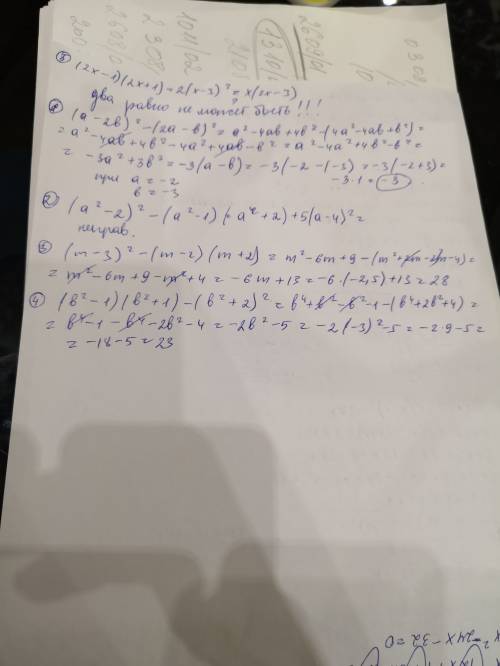 ⑤ (2x-1)(2x+1)-2(x-3)²= x(2x-3)
два равно не может быть!!!
① (a-2b)²-(2a-b)²=a²-4ab+4b²-(4a²-4ab+b²)=
=a²-4ab+4b²-4a²+4ab-b²=a²-4a²+4b²-b²=
= -3a²+3b²=-3(a-b)=-3(-2-(-3)=-3(-2+3)=
при a=-2
b=-3
-3·1=-3
② (a²-2)²-(a²-1)(a²+2)+5(a-4)²=
неправ.
③ (m-3)²-(m-2)(m+2)=m²-6m+9-(m²+2m-2m-4)=
= m²-6m+9-m²+4=-6m+13=-6·(-2,5)+13=28
④ (b²-1)(b²+1)-(b²+2)²=b⁴+b²-b²-1-(b⁴+2b²+4)=
= b⁴-1-b⁴-2b²-4=-2b²-5=-2(-3)²-5=-2·9-5=
=-18-5=23
x²-24x-32=0